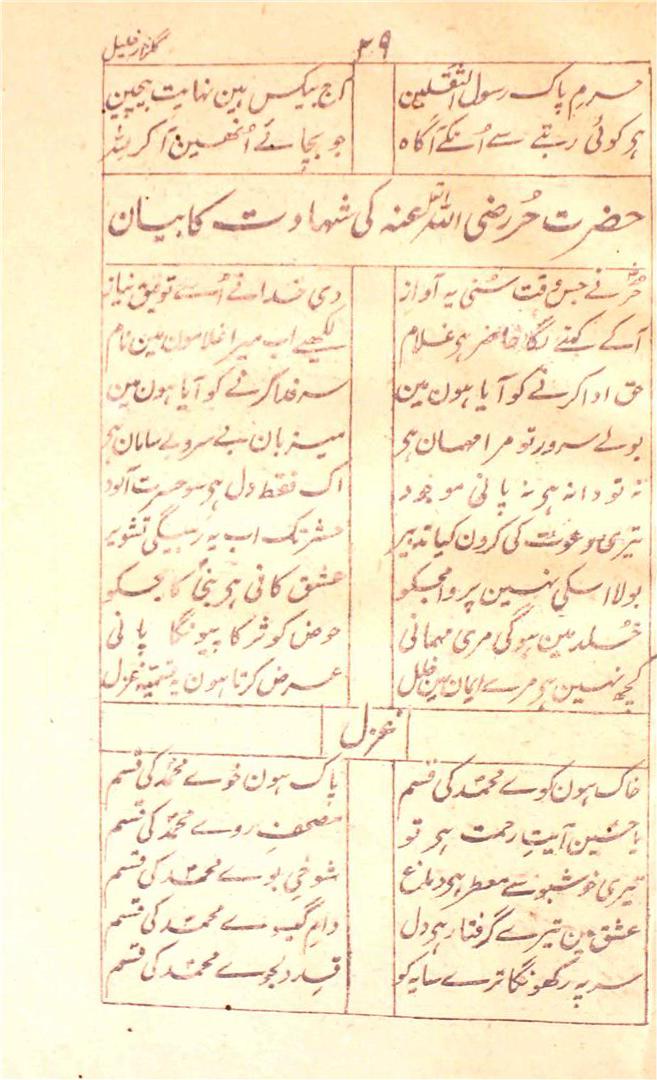 ۳۹ گلزار خلیل
حرمِ پاک رسول الثقلین آج بیکس ہین نہایت بیچین
ہی کوئی رتبے سے اُنکے آگاہ جو بچائے اُنھین آکر للہ
حضرت حُر رضی اللہ تعالیٰ عنہ کی شہادت کا بیان
حُر نے جس وقت سُنی یہ آواز دی خدا نے اُسے توفیق نیاز
آکے کہنے لگا حاضر ہی غلام لکھیے اب میرا غلامون مین نام
حق ادا کرنے کو آیا ہون مین سر فدا کرنے کو آیا ہون مین
بولے سرور تو مرا مہمان ہی میزبان بے سر و بے سامان ہی
نہ تو دانہ ہی نہ پانی موجود اک فقط دل ہی سو حسرت آلود
تیری دعوت کی کرون کیا تدبیر حشر تک اب یہ رہیگی تشویر
بولا اسکی نہین پروا مجکو عشق کافی ہی بنی کا مجکو
خُلد مین ہوگی مری مہمانی حوض کوثر کا پیونگا پانی
کچھ نہین ہی مرے ایمان مین خلل عرض کرتا ہون یہ قسمیہ غزل
غزل
خاک ہون کوے محمد کی قسم پاک ہون خوے محمد کی قسم
یا حسین آیتِ رحمت ہی تو مصحفِ روے محمد کی قسم
تیری خوشبو سے معطر ہی دماغ شوخیِ بوے محمد کی قسم
عشق مین تیرے گرفتار ہی دل دامِ گیسوے محمد کی قسم
سر پہ رکھونگا ترے سایہ کو قدِ دلجوے محمد کی قسم